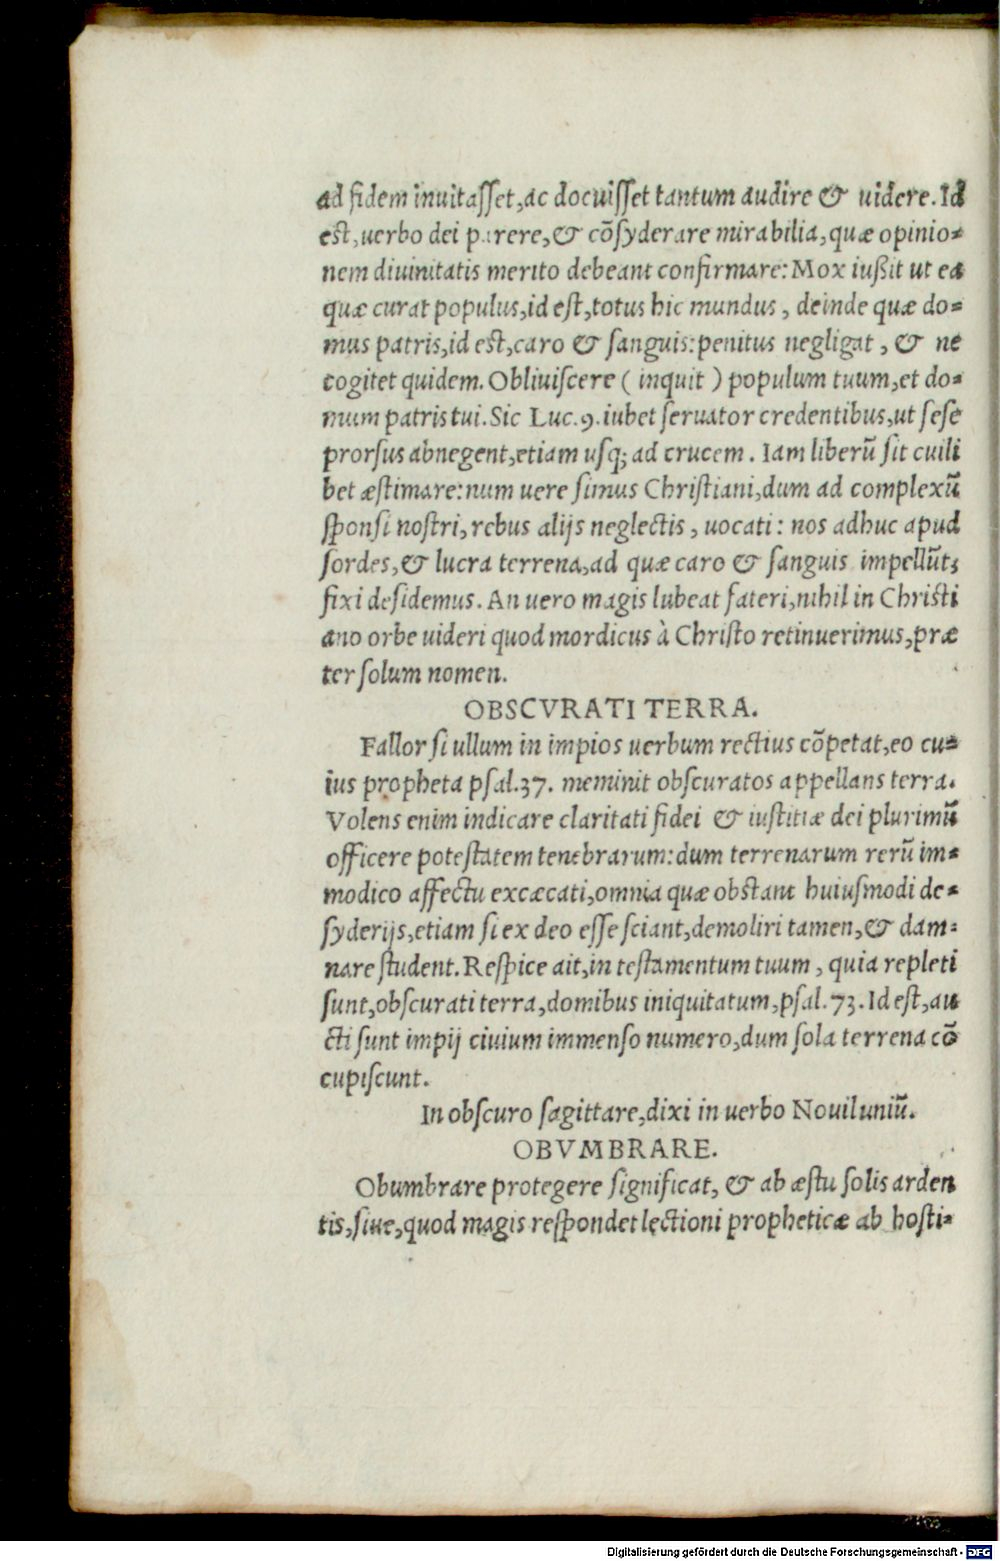 ad fidem inuitasset, ac docuisset tantum audire & uidere. Id
est, uerbo dei parere, & cōsyderare mirabilia, quæ opinio-
nem diuinitatis merito debeant confirmare: Mox iußit ut ea
quæ curat populus, id est, totus hic mundus, deinde quæ do-
mus patris, id est, caro & sanguis: penitus negligat, & ne
cogitet quidem. Obliuiscere (inquit) populum tuum, et do-
mum patris tui. Sic Luc. 9. iubet seruator credentibus, ut sese
prorsus abnegent, etiam usq; ad crucem. Iam liberū sit cuili
bet æstimare: num uere simus Christiani, dum ad complexū
sponsi nostri, rebus alijs neglectis, uocati: nos adhuc apud
sordes, & lucra terrena, ad quæ caro & sanguis impellūt,
fixi desidemus. An uero magis lubeat fateri, nihil in Christi
ano orbe uideri quod mordicus à Christo retinuerimus, præ
ter solum nomen.
OBSCVRATI TERRA.
Fallor si ullum in impios uerbum rectius cōpetat, eo cu-
ius propheta psal. 37. meminit obscuratos appellans terra.
Volens enim indicare claritati fidei & iustitiæ dei plurimū
officere potestatem tenebrarum: dum terrenarum rerū im-
modico affectu excæcati, omnia quæ obstant huiusmodi de-
syderijs, etiam si ex deo esse sciant, demoliri tamen, & dam-
nare student. Respice ait, in testamentum tuum, quia repleti
sunt, obscurati terra, domibus iniquitatum, psal. 73. Id est, au
cti sunt impij ciuium immenso numero, dum sola terrena cō
cupiscunt.
In obscuro sagittare, dixi in uerbo Nouiluniū.
OBVMBRARE.
Obumbrare protegere significat, & ab æstu solis arden
tis, siue, quod magis respondet lectioni propheticæ ab hosti-
Digitalisierung gefördert durch die Deutsche Forschungsgemeinschaft - DFG